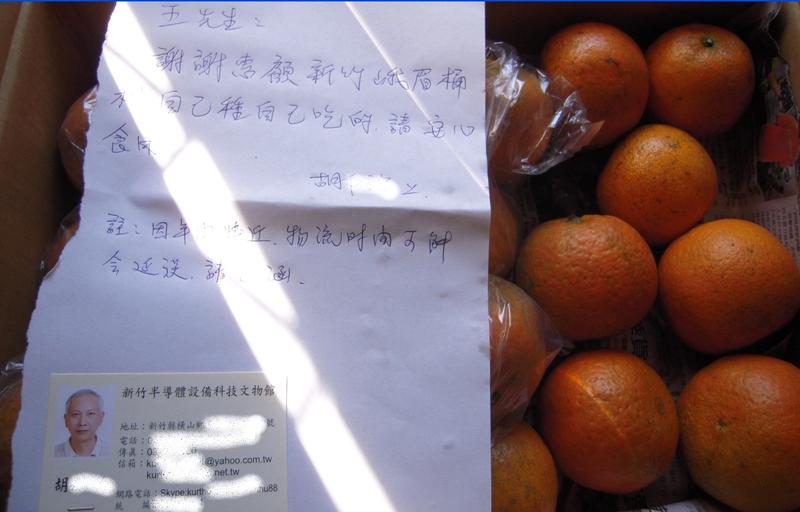 王先生：
謝謝惠顧新竹峨眉桶
柑 自己種自己吃的,請安心
食用
胡 上.
註：因年 接近.物流时间可能
会延误.請 涵.
新竹半導體設備科技文物館
地址：新竹縣橫山鄉 號
電話：0
傳真：03
信箱：ku @yahoo.com.tw
kur .net.tw
胡
網路電話：Skype:kurth hu88
統 編